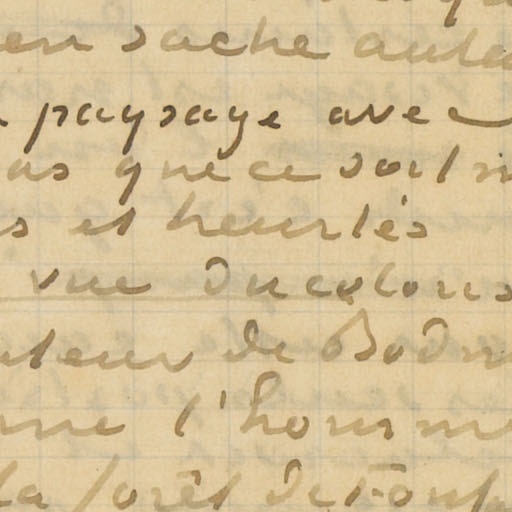 en sache auta
paysage avec
as que ce soit
s et heurtés
vue du coloris
uteur de Bodm
me l'homme
la forêt de Font